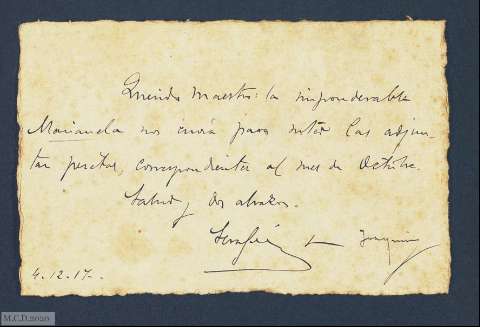 Querido Maestro: la imponderable
Marianela nos envia para usted las adjun-
tas pesetas, correspondientes al mes de Octubre.
Salud y dos abrazos.
Serafín + Joaquin
4.12.17.
M.C.D.2020